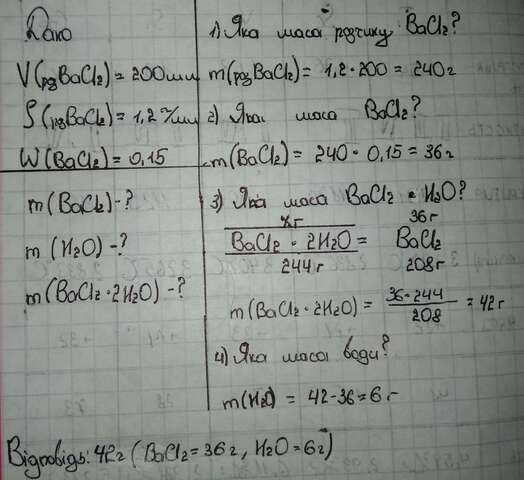 Дано
V(рзBaCl₂) = 200мл
ρ(рзBaCl₂) = 1,2 г/мл
W(BaCl₂) = 0,15
m(BaCl₂) - ?
m(H₂O) - ?
m(BaCl₂·2H₂O) - ?
1) Яка маса розчику BaCl₂?
m(рзBaCl₂) = 1,2·200 = 240г
2) Яка маса BaCl₂?
m(BaCl₂) = 240·0,15 = 36г
3) Яка маса BaCl₂·H₂O?
xг 36г
BaCl₂·2H₂O = BaCl₂
244г 208г
m(BaCl₂·2H₂O) = 36·244/208 = 42г
4) Яка маса води?
m(H₂O) = 42-36 = 6г
Відповідь: 42г (BaCl₂ = 36г, H₂O = 6г)